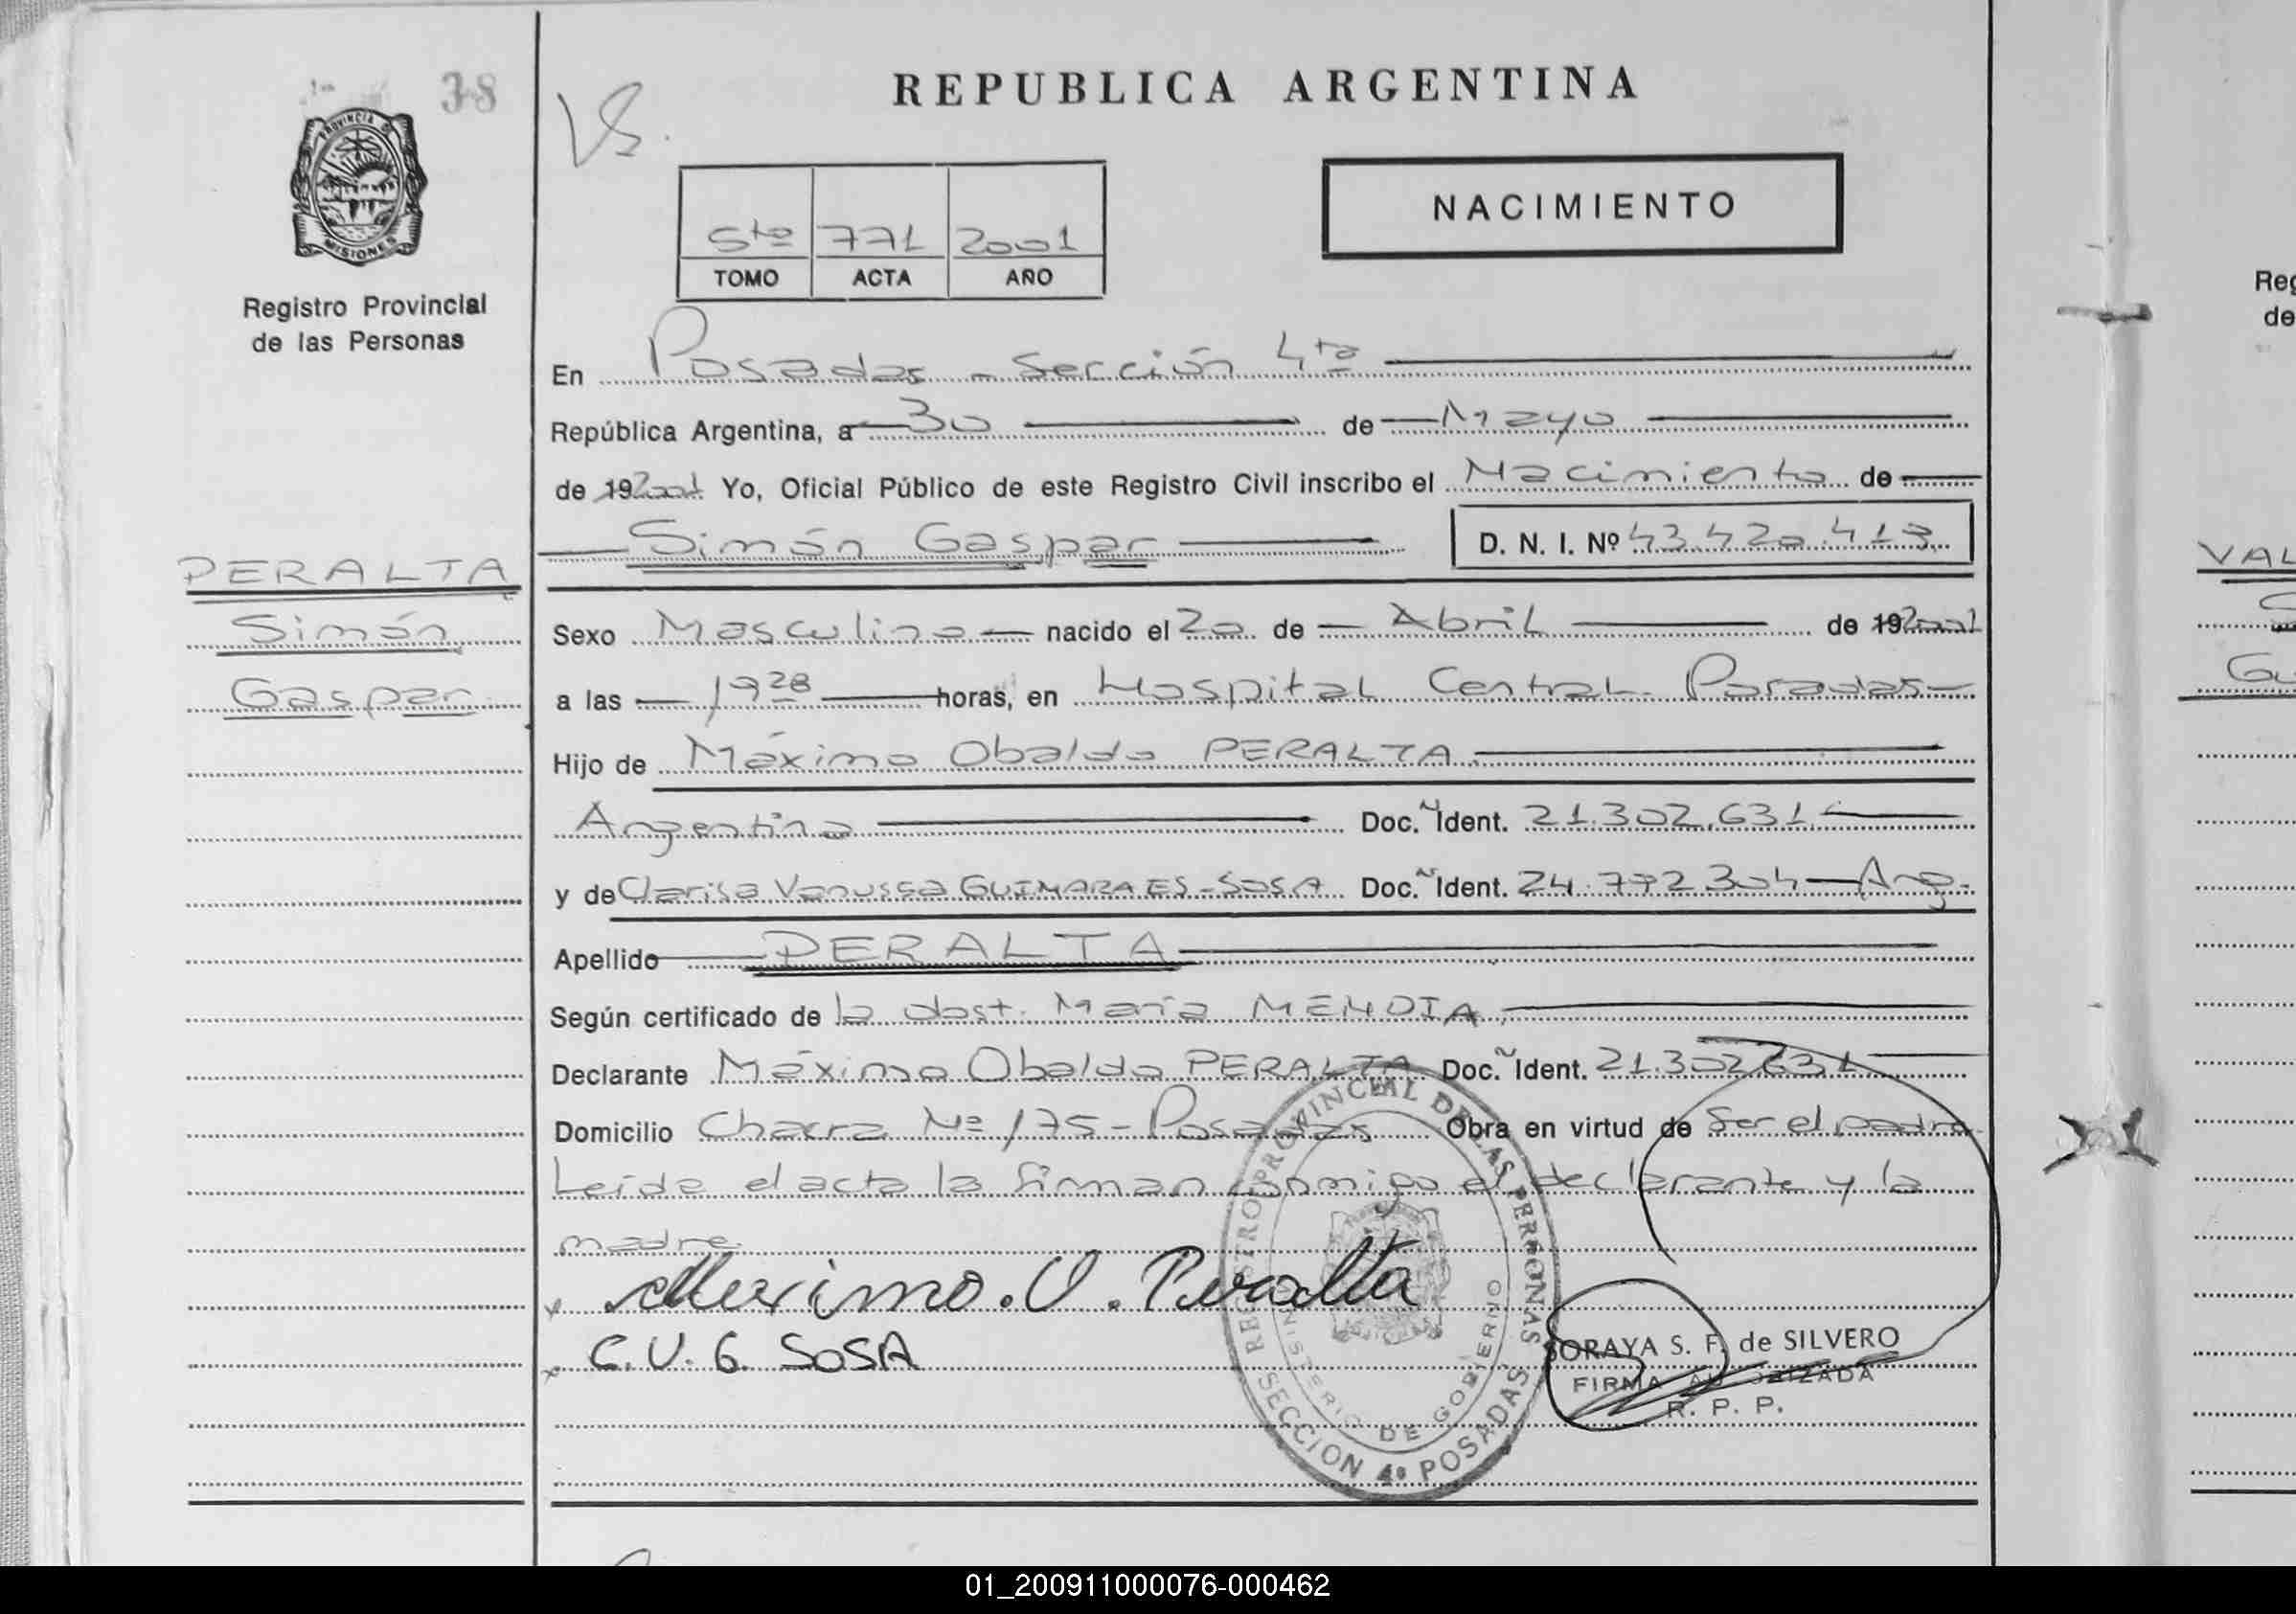 38
REPUBLICA ARGENTINA
PROVINCIA D
MISIONES
Registro Provincial
de las Personas
VS.
5to 771 2001
TOMO ACTA AÑO
NACIMIENTO
En Posadas - Sección 4ta
República Argentina, a 30 de Mayo
de 192001 Yo, Oficial Público de este Registro Civil inscribo el Nacimiento de
Simón Gaspar D. N. I. Nº 43.420.413
PERALTA
Simón
Gaspar
Sexo Masculino nacido el 20 de Abril de 192001
a las 19 28 horas, en Hospital Central Posadas
Hijo de Máximo Obaldo PERALTA
Argentino Doc. Ident. 21.302.631
y de Clarisa Vanussa GUIMARAES-SOSA Doc. Ident. 24.792.304 Arg.
Apellido PERALTA
Según certificado de la obst. María MENDIA
Declarante Máximo Obaldo PERALTA Doc. Ident. 21.302.631
Domicilio Chacra Nº 175 - Posadas Obra en virtud de Ser el padre
Leída el acta la firman conmigo el declarante y la
madre.
x Maximo.O.Peralta
x C.V.G. SOSA
REGISTRO PROVINCIAL DE LAS PERSONAS
MINISTERIO DE GOBIERNO
SECCION 4º POSADAS
SORAYA S. F. de SILVERO
FIRMA AUTORIZADA
R. P. P.
Reg
de
VAL
Gu
01_200911000076-000462